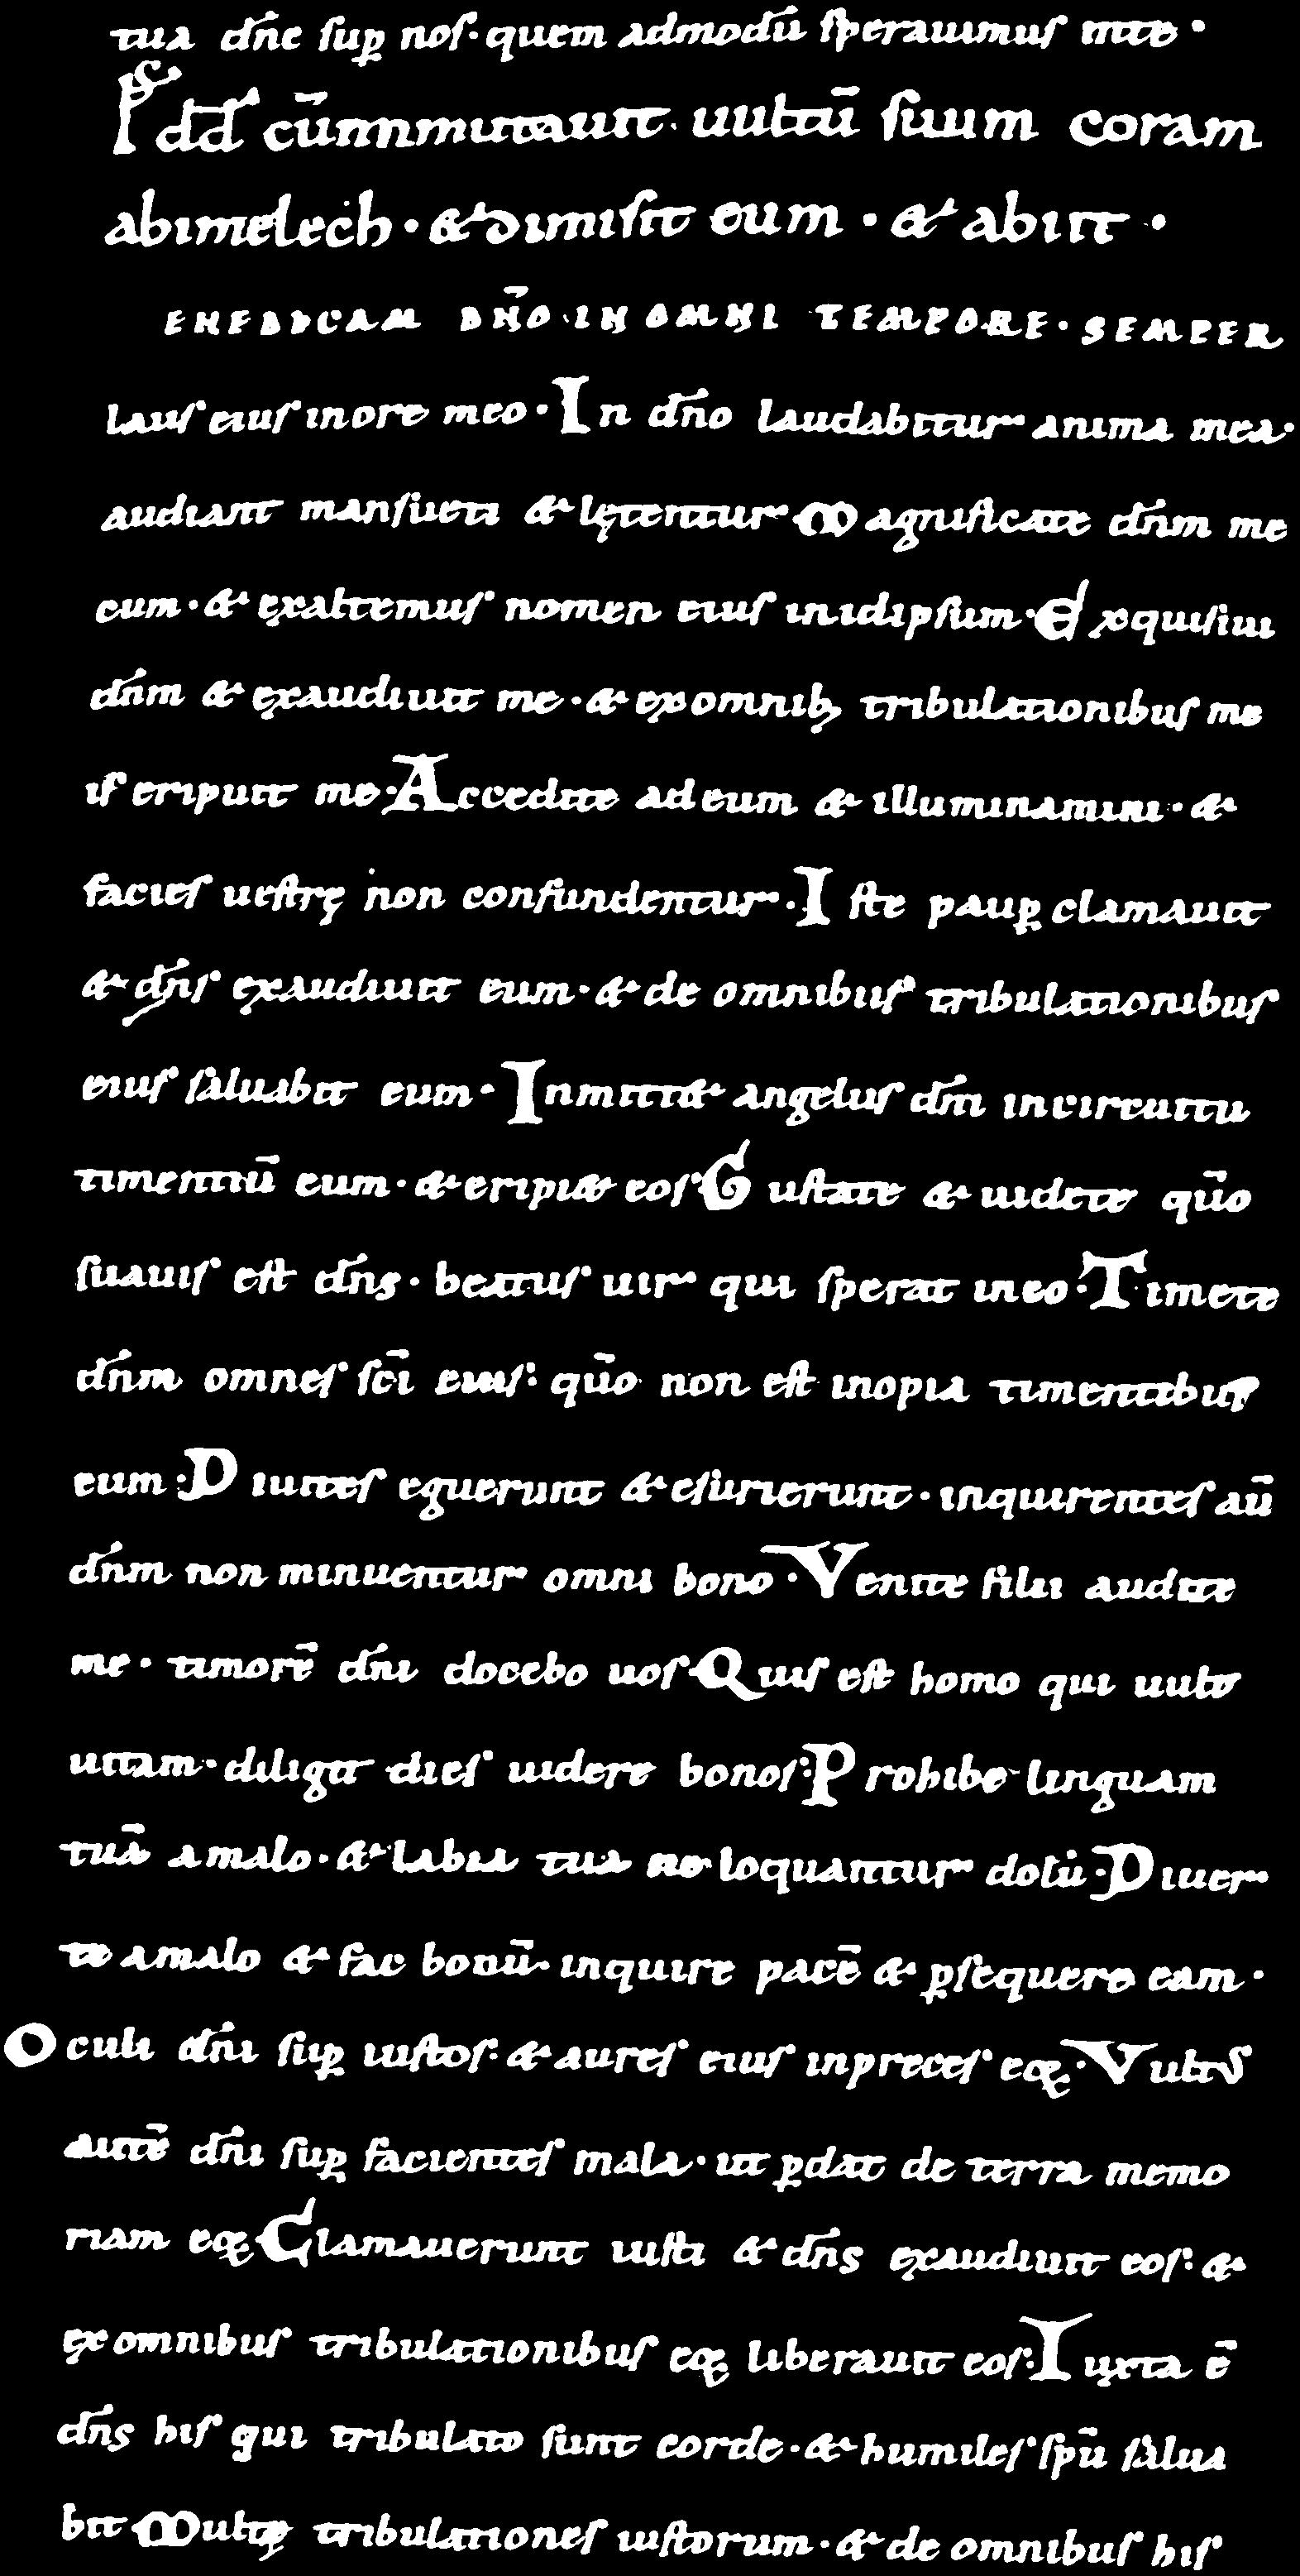 tua dn̄e sup̱ nos· quem admodū sperauimus inte·
Ps dd̄ cūmmutauit uultū suum coram
abimelech· & dimisit eum· & abiit·
ENEDICAM DN̄O IN OMNI TEMPORE· SEMPER
laus eius inore meo· In dn̄o laudabitur anima mea·
audiant mansueti & lętentur Magnificate dn̄m me
cum· & exaltemus nomen eius inidipsum· Exquisiui
dn̄m & exaudiuit me· & ex omnib; tribulationibus me
is eripuit me· Accedite ad eum & illuminamini· &
facies uestrę non confundentur· Iste paup̱ clamauit
& dn̄s exaudiuit eum· & de omnibus tribulationibus
eius saluabit eum· Inmittit angelus dn̄i incircuitu
timentiū eum· & eripi& eos Gustate & uidete qūo
suauis est dn̄s· beatus uir qui sperat ineo· Timete
dn̄m omnes sc̄i eius: qūo non est inopia timentibus
eum: Diuites eguerunt & esurierunt· inquirentes aū
dn̄m non minuentur omni bono· Venite filii audite
me· timorē dn̄i docebo uos Quis est homo qui uult
uitam· diligit dies uidere bonos: Prohibe linguam
tuā amalo· & labia tua ne loquantur dolū· Diuer
te amalo & fac bonū· inquire pacē & p̱sequere eam·
Oculi dn̄i sup̱ iustos: & aures eius inpreces eoꝝ· Vultus
autē dn̄i sup̱ facientes mala· ut p̱dat de terra memo
riam eoꝝ Clamauerunt iusti & dn̄s exaudiuit eos: &
ex omnibus tribulationibus eoꝝ liberauit eos: Iuxta ē
dn̄s his qui tribulato sunt corde· & humiles sp̄u salua
bit Multę tribulationes iustorum· & de omnibus his